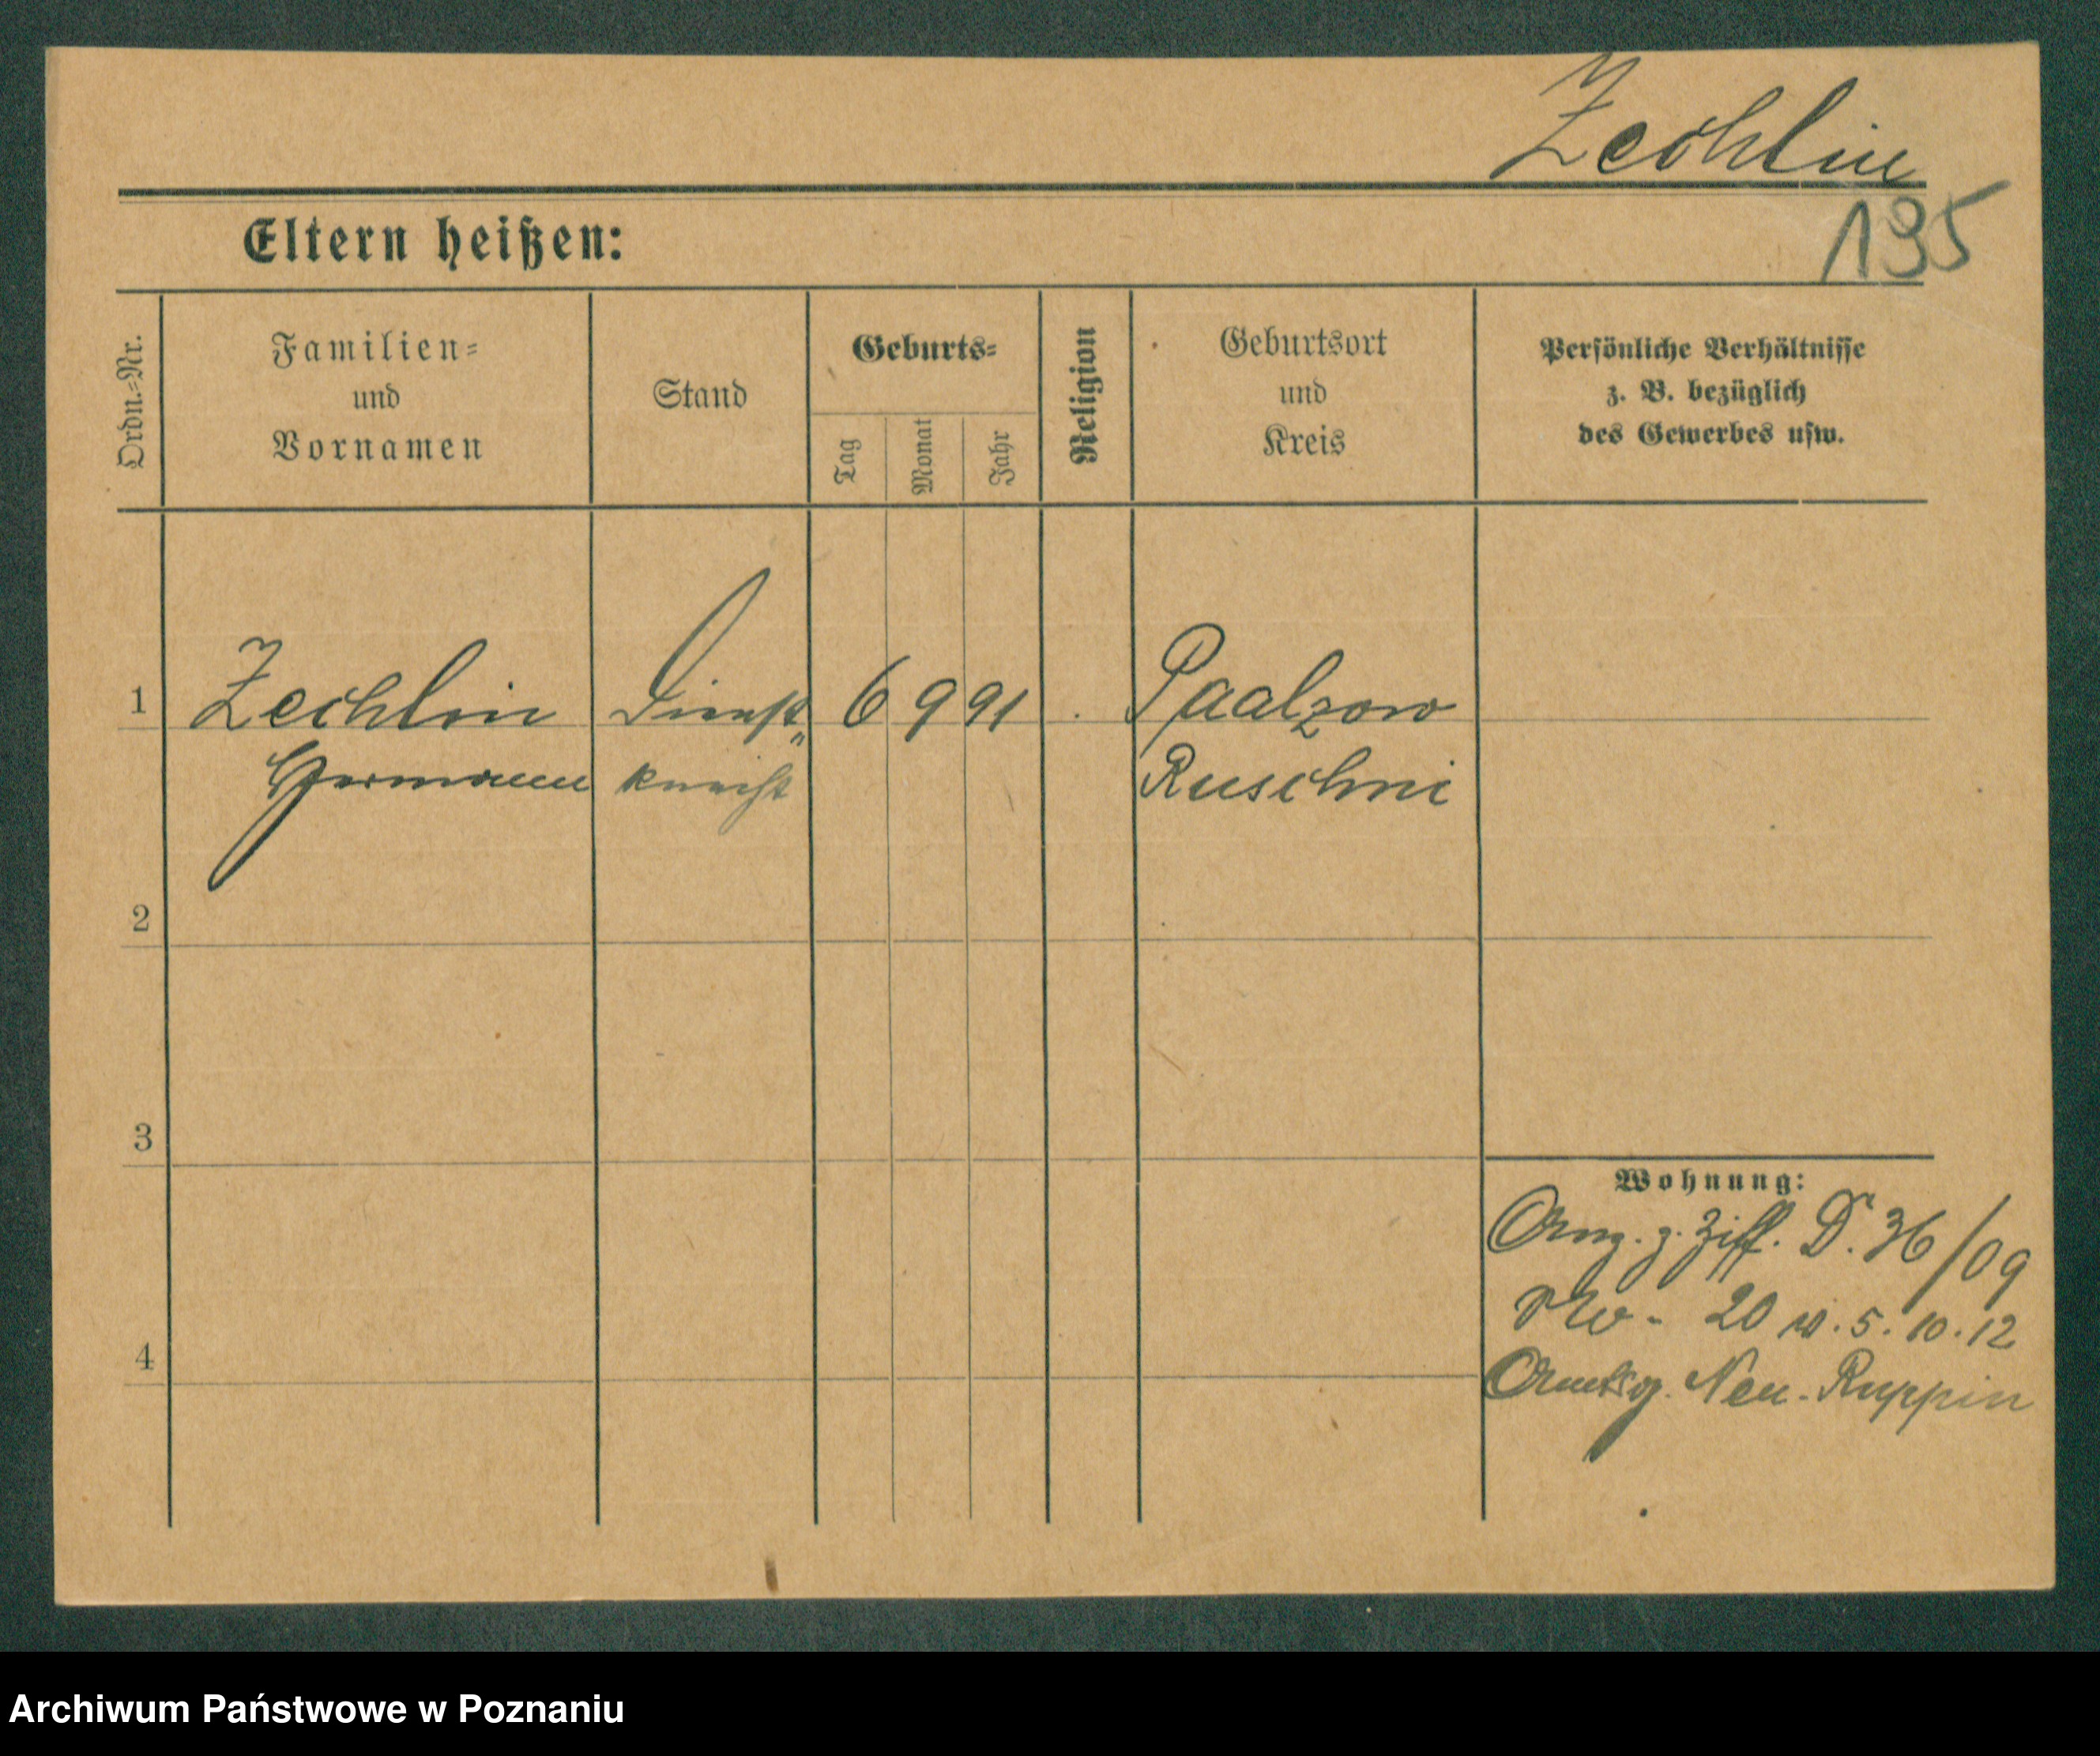 Zechlin
195
Eltern heißen:
Ordn.=Nr.
Familien=
und
Vornamen
Stand
Geburts=
Tag
Monat
Jahr
Religion
Geburtsort
und
Kreis
Persönliche Verhältnisse
z. B. bezüglich
des Gewerbes usw.
1
Zechlin Dienst„ 6 9 91 Paalzow
Hermann knecht Ruschni
2
3
4
Wohnung:
Anz. z. Ziff. D. 36/09
20 v. 5. 10. 12
Amtsg. Neu-Ruppin
Archiwum Państwowe w Poznaniu